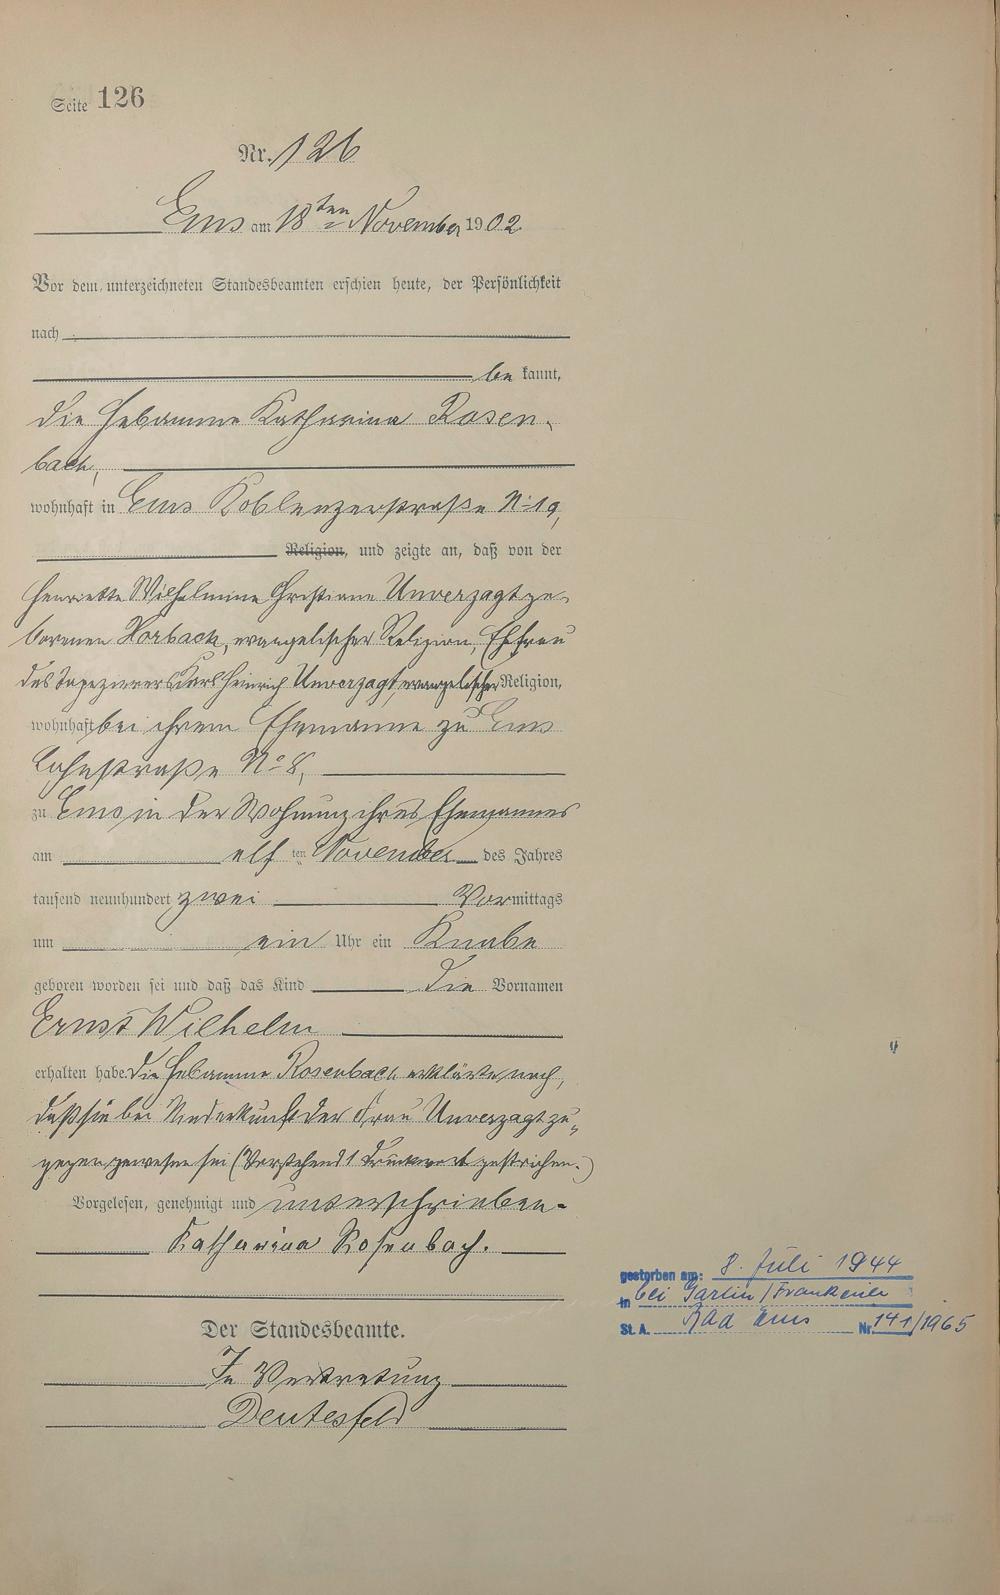 Seite 126
Nr. 126
Ems am 18ten November 1902
Vor dem unterzeichneten Standesbeamten erschien heute, der Persönlichkeit
nach
be kannt,
die Hebamme Katharina Rosen-
bach,
wohnhaft in Ems Koblenzerstraße No 19,
Religion, und zeigte an, daß von der
Henriette Wilhelmine Christiane Unverzagt ge-
borenen Horbach, evangelischer Religion, Ehefrau
des Tapezierers Karl Heinrich Unverzagt, evangelischer Religion,
wohnhaft bei ihrem Ehemanne zu Ems
Lahnstraße No 8,
zu Ems in der Wohnung ihres Ehemannes
am elf ten November des Jahres
tausend neunhundert zwei Vormittags
um ein Uhr ein Knabe
geboren worden sei und daß das Kind die Vornamen
Ernst Wilhelm
erhalten habe. Die Hebamme Rosenbach erklärte noch,
daß sie bei Niederkunft der Frau Unverzagt zu-
gegen gewesen sei (Vorstehend 1 Druckwort gestrichen.)
Vorgelesen, genehmigt und unterschrieben.
Katharina Rosenbach.
gestorben am: 8. Juli 1944
in bei Garlin/Frankreich
St. A. Bad Ems Nr. 141/1965
Der Standesbeamte.
In Vertretung
Deutesfeld